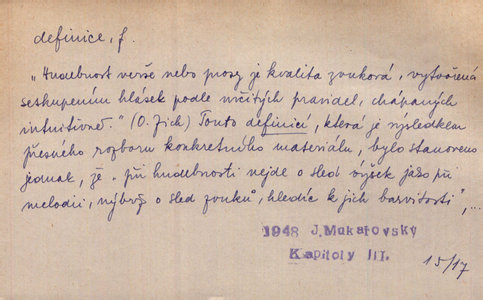 definice, f.
„Hudebnost verše nebo prosy je kvalita zvuková, vytvořená
seskupením hlásek podle určitých pravidel, chápaných
intuitivně.“ (O. Zich) Touto definicí, která je výsledkem
přesného rozboru konkretního materiálu, bylo stanoveno
jednak, že „při hudebnosti nejde o sled výšek jako při
melodii, nýbrž o sled zvuků, hledíc k jich barvitosti“, ...
1948 J. Mukařovský
Kapitoly III.
15/17